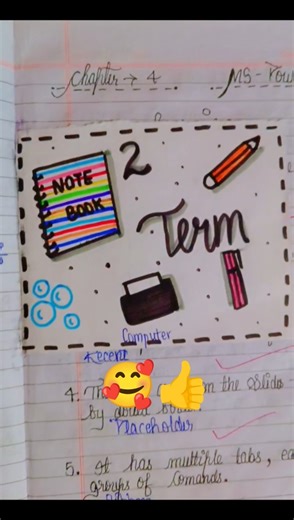 Chapter → 4 MS-
NOTE
BOOK
2
Term
Computer
Recent
4. the Slide
by
Placeholder
5. It has multiple tabs, ea
groups of Comands.